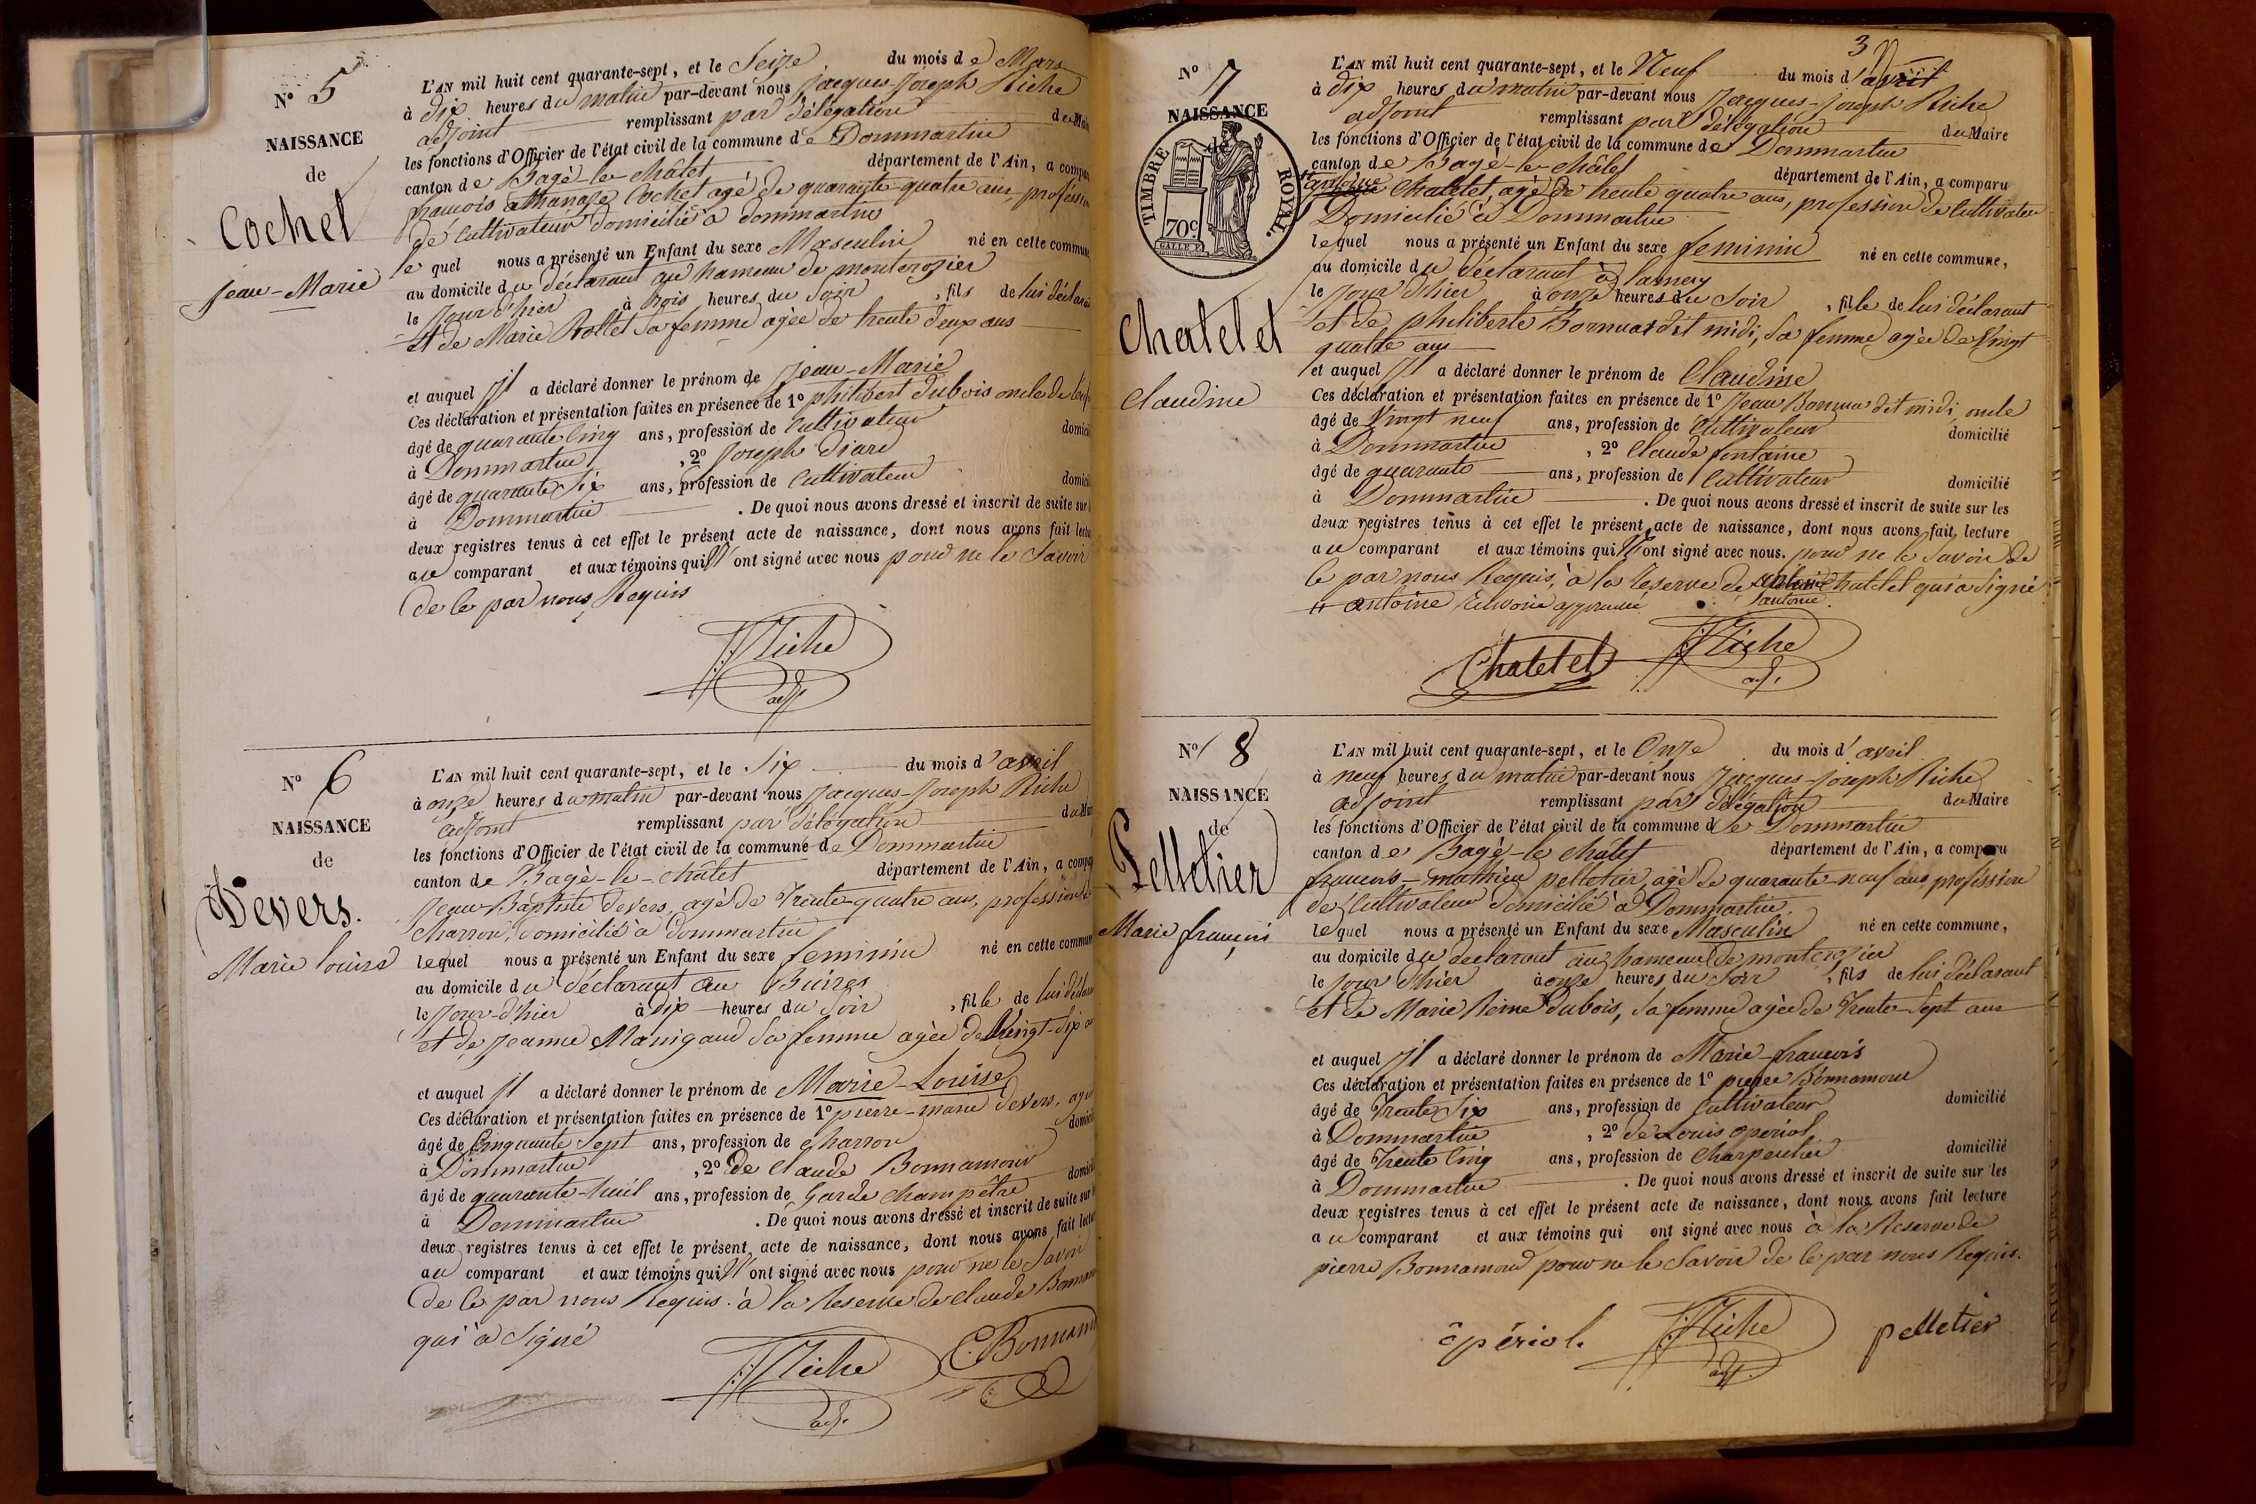 N° 5
NAISSANCE
de
Cochet
Jean-Marie
L'AN mil huit cent quarante-sept, et le Seize du mois de Mars
à dix heures du matin par-devant nous Jacques-Joseph Riche
adjoint remplissant par délégation du Mai
les fonctions d'Officier de l'état civil de la commune de Dommartin
canton de Bagé-le-châtel département de l'Ain, a compa
françois athanaze Cochet agé de quarante-quatre ans, professio
de Cultivateur domicilié à dommartin
le quel nous a présenté un Enfant du sexe Masculin né en cette commune
au domicile du déclarant au hameau de montcrozier
le jour d'hier à trois heures du Soir, fils de lui déclara
et de Marie Rollet sa femme agée de trente deux ans
et auquel Il a déclaré donner le prénom de Jean-Marie
Ces déclaration et présentation faites en présence de 1° philibert dubois oncle de
âgé de quarante cinq ans, profession de Cultivateur domici
à Dommartin, 2° Joseph diard
âgé de quarante Six ans, profession de Cultivateur domici
à Dommartin. De quoi nous avons dressé et inscrit de suite sur
deux registres tenus à cet effet le présent acte de naissance, dont nous avons fait lectu
au comparant et aux témoins qui N'ont signé avec nous pour ne le Savoir
de ce par nous Requis
JJRiche
adj.
N° 6
NAISSANCE
de
Devers.
Marie Louise
L'AN mil huit cent quarante-sept, et le Six du mois d'avril
à onze heures du matin par-devant nous Jacques-Joseph Riche
adjoint remplissant par délégation du Mai
les fonctions d'Officier de l'état civil de la commune de Dommartin
canton de Bagé-le-châtel département de l'Ain, a compa
Jean-Baptiste devers, agé de Trente-quatre ans, profession de
charron, domicilié à dommartin
lequel nous a présenté un Enfant du sexe feminin né en cette commun
au domicile du déclarant au Buires
le jour d'hier à dix heures du Soir, fille de lui déclara
et de Jeanne Manigaud Sa femme agée de Vingt-Six
et auquel Il a déclaré donner le prénom de Marie-Louise
Ces déclaration et présentation faites en présence de 1° pierre-marie devers,
âgé de Cinquante Sept ans, profession de charron domici
à Dommartin, 2° de claude Bonnamour
âgé de quarante-huit ans, profession de Garde champêtre domici
à Dommartin. De quoi nous avons dressé et inscrit de suite sur
deux registres tenus à cet effet le présent acte de naissance, dont nous avons fait lectu
au comparant et aux témoins qui N'ont signé avec nous pour ne le Savoir
de ce par nous Requis. à la Reserve de claude Bonnam
qui à Signé
JJRiche
adj.
C. Bonnam
3
N° 7
NAISSANCE
de
TIMBRE ROYAL.
70c
Chatelet
Claudine
L'AN mil huit cent quarante-sept, et le Neuf du mois d'avril
à dix heures du matin par-devant nous Jacques-Joseph Riche
adjoint remplissant par délégation du Maire
les fonctions d'Officier de l'état civil de la commune de Dommartin
canton de Bagé-le-châtel département de l'Ain, a comparu
antoine Chatelet, agé de trente quatre ans, profession de Cultivateur
Domicilié à Dommartin
lequel nous a présenté un Enfant du sexe feminin né en cette commune,
au domicile du déclarant à
le Jour d'hier à onze heures du Soir, fille de lui déclarant
et de philiberte Bornuat dit midi, Sa femme agée de Vingt
quatre ans
et auquel Il a déclaré donner le prénom de Claudine
Ces déclaration et présentation faites en présence de 1° Jean dit midi oncle
âgé de Vingt neuf ans, profession de Cultivateur domicilié
à Dommartin, 2° Claude fontaine
âgé de quarante ans, profession de Cultivateur domicilié
à Dommartin. De quoi nous avons dressé et inscrit de suite sur les
deux registres tenus à cet effet le présent acte de naissance, dont nous avons fait lecture
au comparant et aux témoins qui N'ont signé avec nous. pour ne le Savoir de
ce par nous Requis, à la Reserve de Chatelet qui à Signé
antoine
antoine approuvé
Chatelet
JJRiche
adj.
N° 8
NAISSANCE
de
Pelletier
Marie françois
L'AN mil huit cent quarante-sept, et le Onze du mois d'avril
à neuf heures du matin par-devant nous Jacques-Joseph Riche
adjoint remplissant par délégation du Maire
les fonctions d'Officier de l'état civil de la commune de Dommartin
canton de Bagé-le-châtel département de l'Ain, a comparu
francois-mathieu pelletier, agé de quarante-neuf ans profession
de Cultivateur domicilié à Dommartin
lequel nous a présenté un Enfant du sexe Masculin né en cette commune,
au domicile du declarant au hameau de montcrozier
le jour d'hier à onze heures du Soir, fils de lui déclarant
et de Marie Reine Dubois, Sa femme agée de Trente Sept ans
et auquel Il a déclaré donner le prénom de Marie-francois
Ces déclaration et présentation faites en présence de 1° pierre Bonnamour
âgé de Trente Six ans, profession de Cultivateur domicilié
à Dommartin, 2° de Louis operiol
âgé de Trente Cinq ans, profession de Charpentier domicilié
à Dommartin. De quoi nous avons dressé et inscrit de suite sur les
deux registres tenus à cet effet le présent acte de naissance, dont nous avons fait lecture
au comparant et aux témoins qui ont signé avec nous à la Reserve de
pierre Bonnamour pour ne le Savoir de ce par nous Requis.
opériol
JJRiche
adj.
pelletier